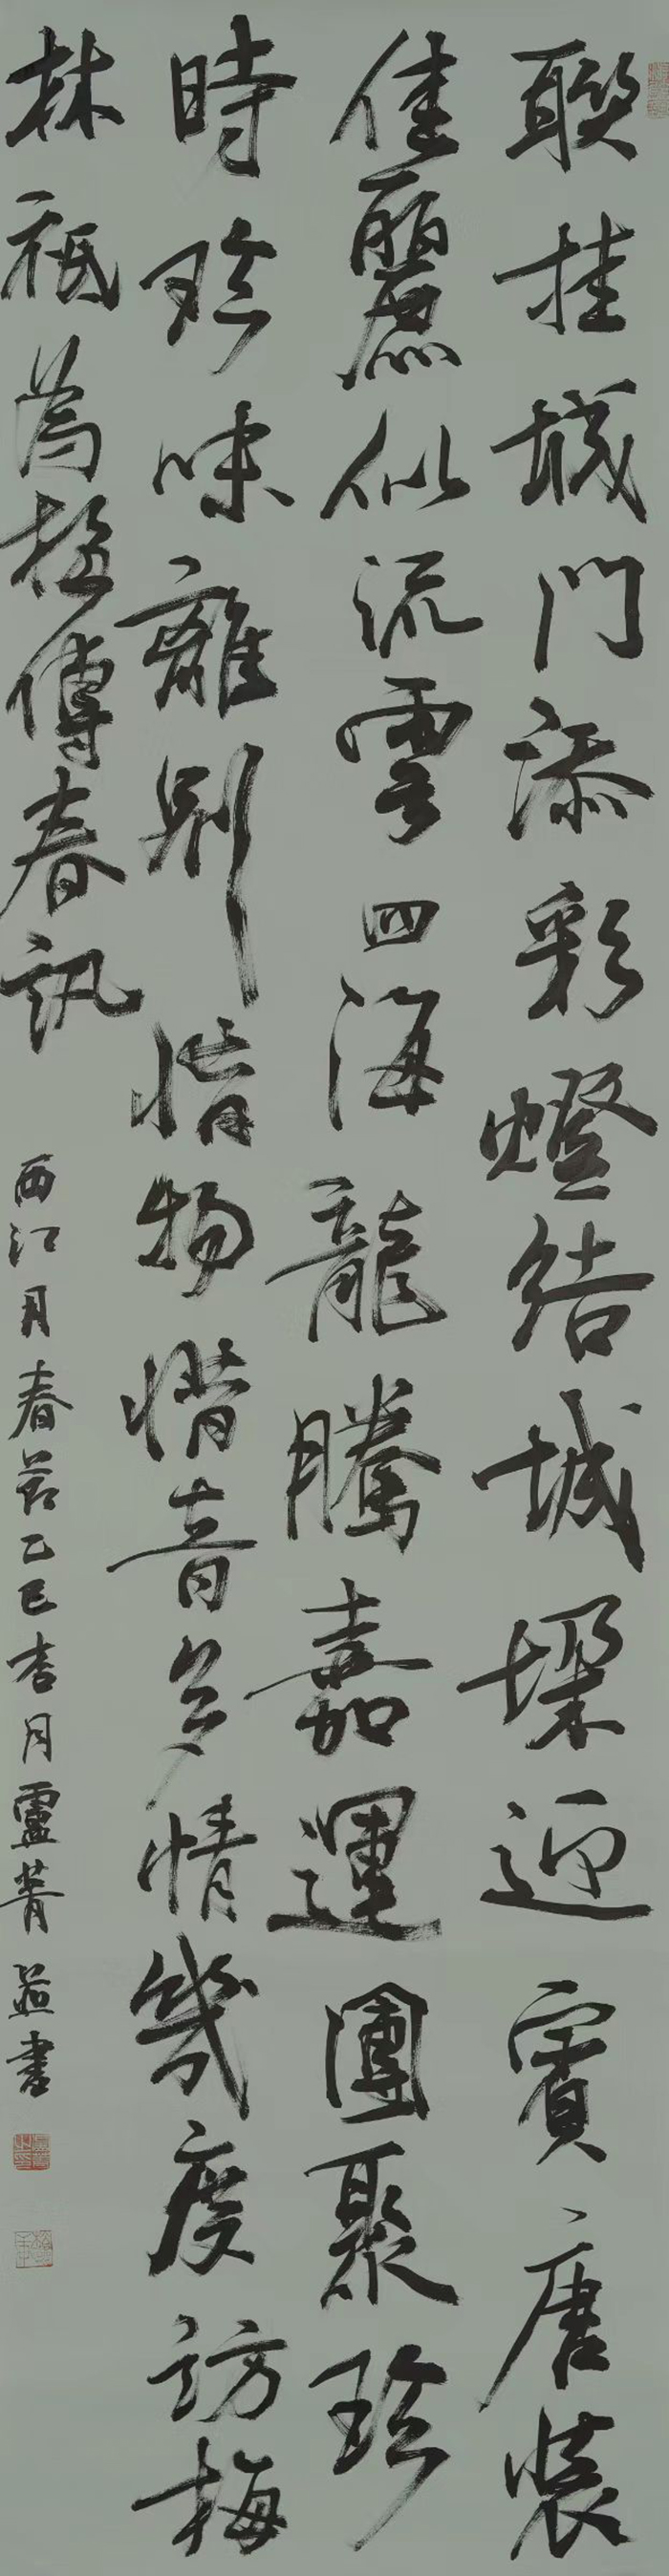 聯挂城門添彩燈結城垛迎賓唐裝
佳麗似流雲四海龍騰嘉運團聚珍
時珍味離別惜物惜音多情幾度訪梅
林祗為梅傳春訊
西江月春節乙巳杏月盧菁燕書